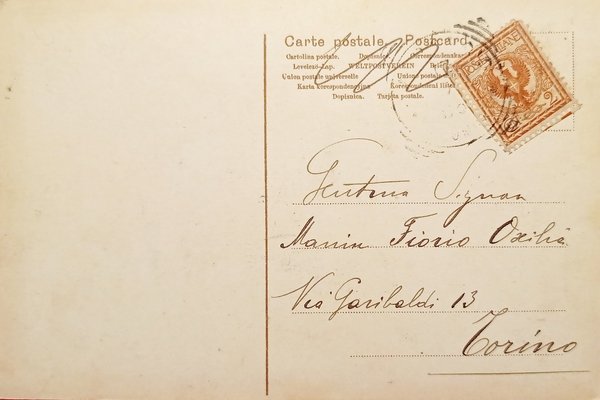 Carte postale. Postcard.
Cartolina postale. Dopisnice. Correspondenzkarte.
Levelező-Lap. WELTPOSTVEREIN
Union postale universelle Unione postale
Karta korespondencyjna Korespondenční lístek
Dopisnica. Tarjeta postale.
POSTE ITALIANE
2
Gentma Signora
Fiorio Oxilia
Via Garibaldi 13
Torino